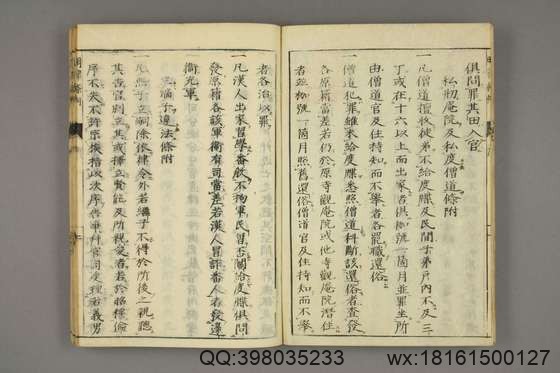 俱問罪其田入官
私刱庵院及私度僧道條附
一凡僧道擅收徒弟不給度牒及民間子弟戶內不及三
丁或在十六以上而出家者俱枷號一箇月並罪坐所
由僧道官及住持知而不舉者各罷職還俗
一僧道犯罪雖未給度牒悉照僧道科斷該還俗者查發
各原籍當差若仍於原寺觀庵院或他寺觀庵院潛住
者並枷號一箇月照舊還俗僧道官及住持知而不舉
者各治以罪
一凡漢人出家習學番教不拘軍民曾否關給度牒俱問
發原籍各該軍衛有司當差若漢人冒詐番人者發邊
衛充軍
立嫡子違法條附
一凡無子立嗣除依律令外若繼子不得於所後之親聽
其告官別立其或擇立賢能及所親愛者若於昭穆倫
序不失不許宗族指以次序告爭并官司受理若義男
QQ:398035233
wx:18161500127